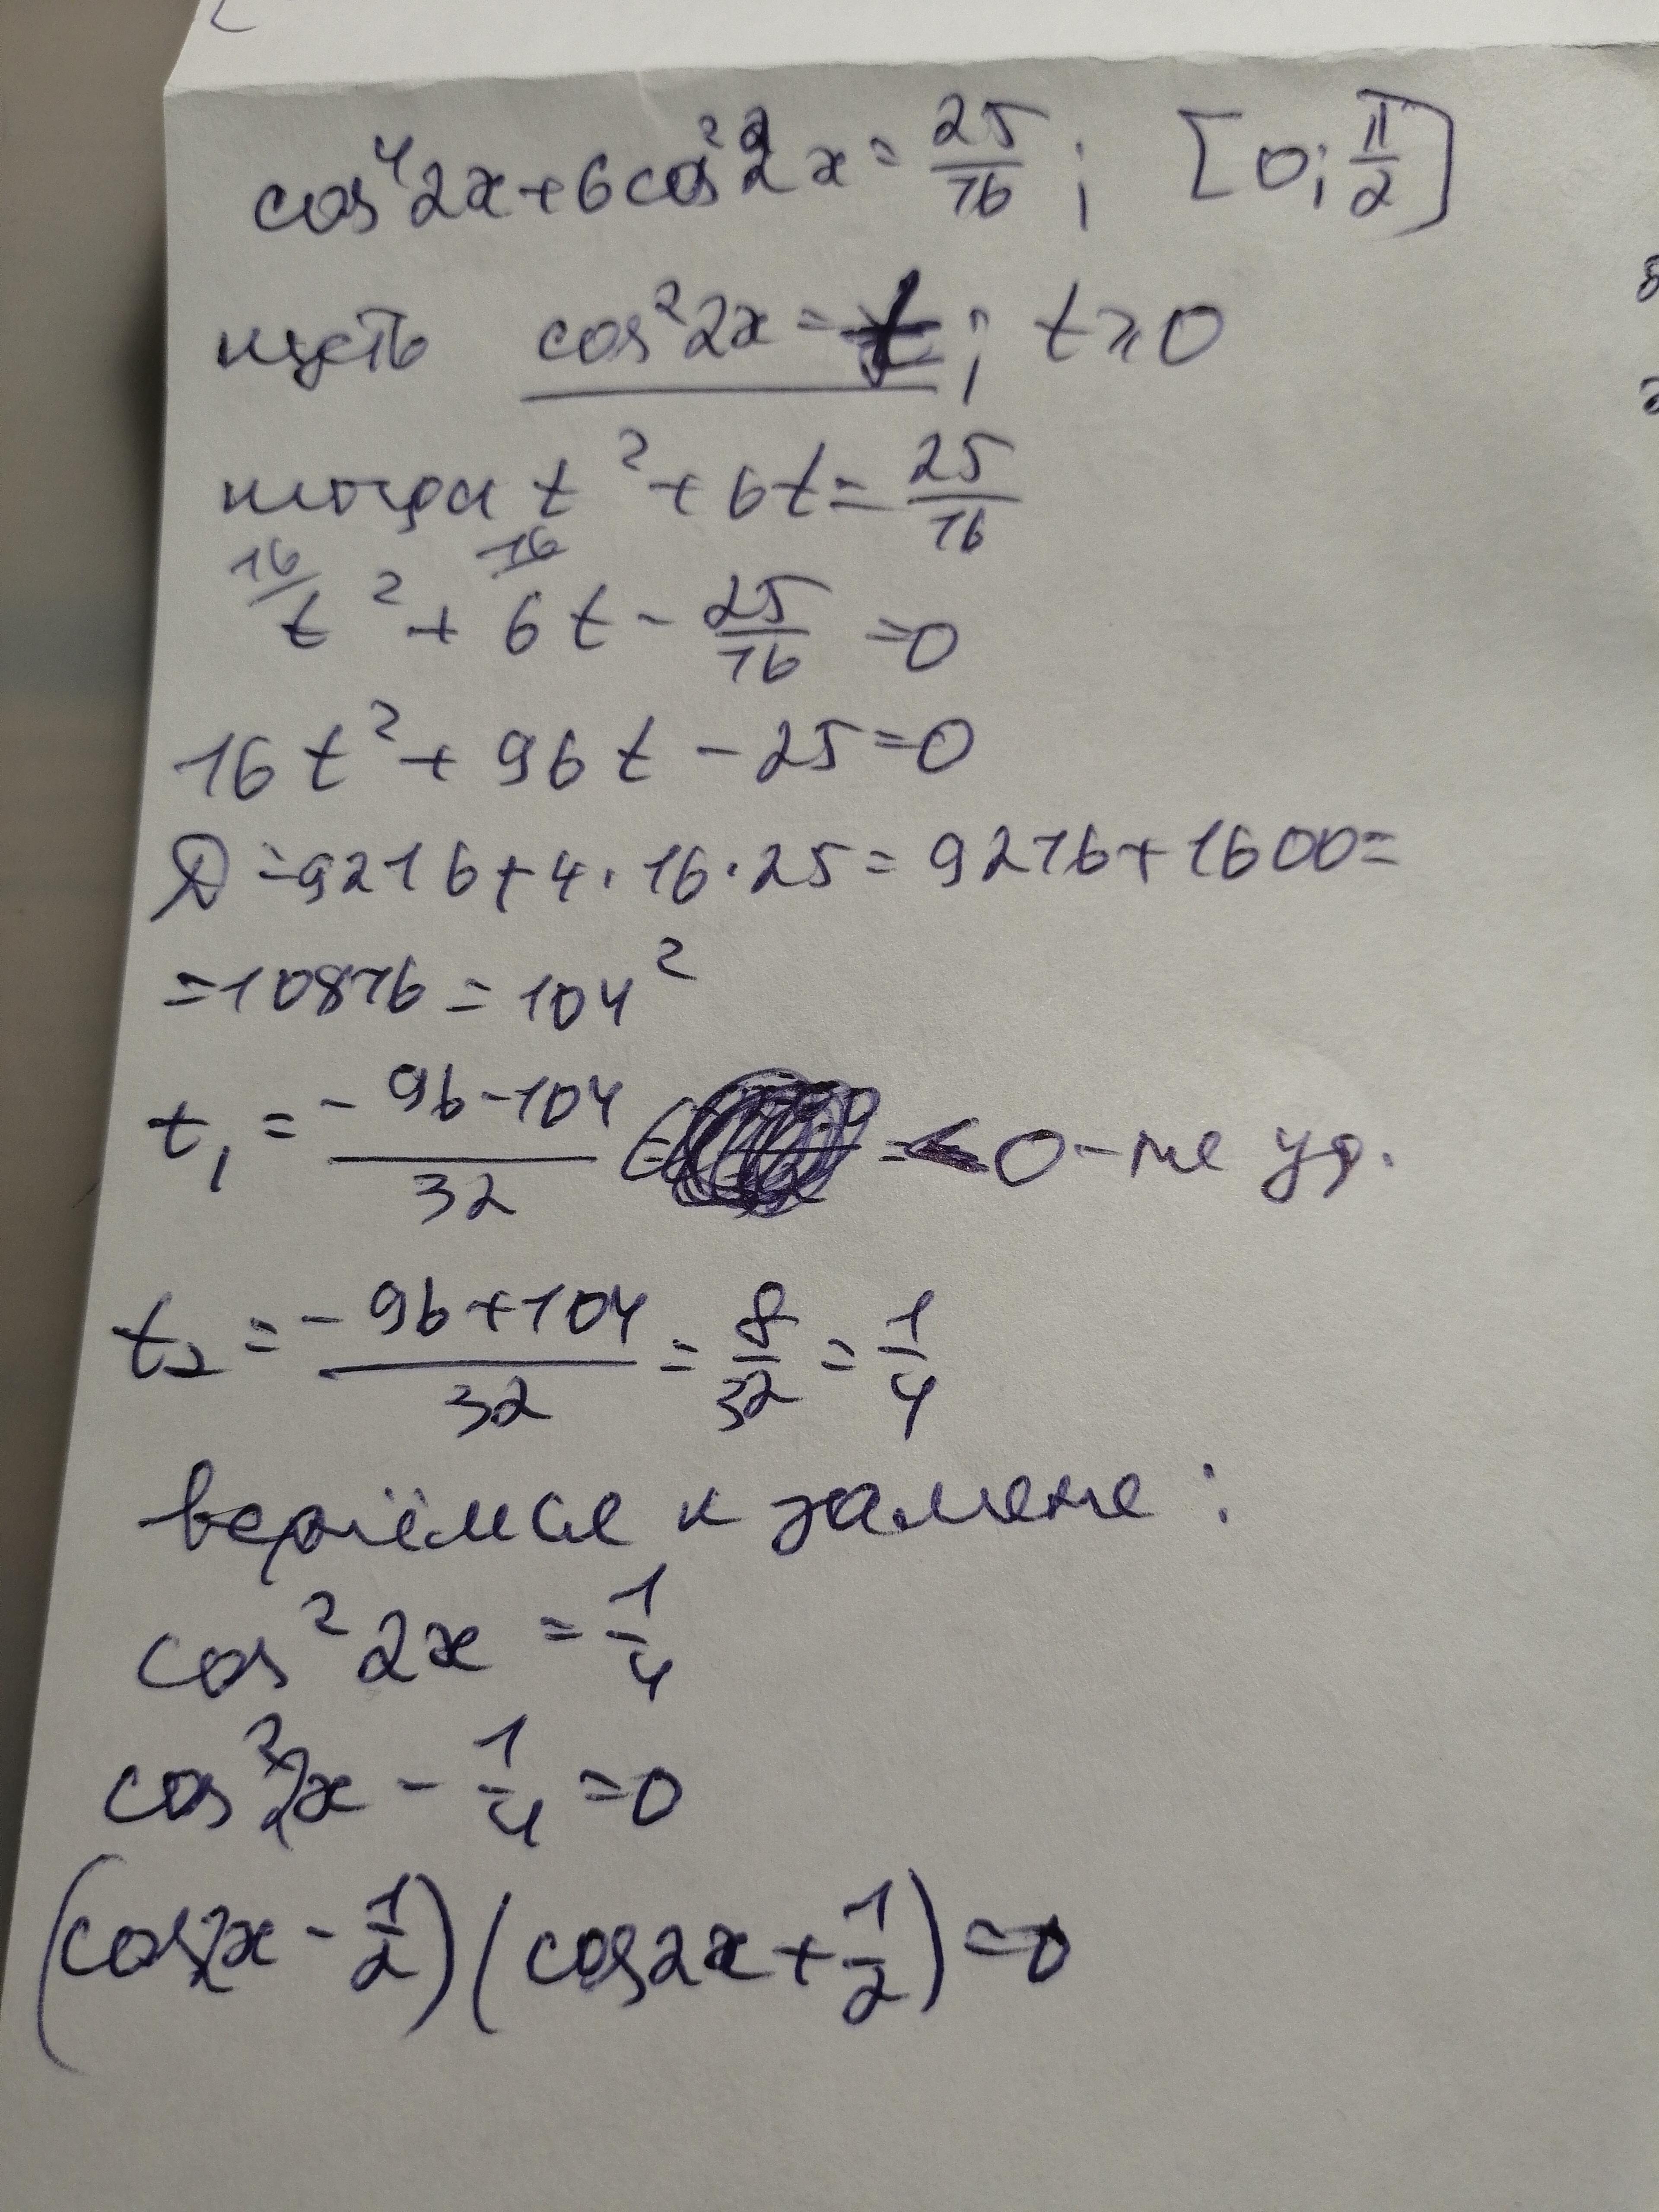 cos⁴2x+6cos²2x=25/16; [0;π/2]
пусть cos²2x=t; t≥0
тогда t²+6t=25/16
16/t²+16/6t-25/16=0
16t²+96t-25=0
D=9216+4·16·25=9216+1600=
=10816=104²
t₁=(-96-104)/32 =<0-не уд.
t₂=(-96+104)/32=8/32=1/4
вернёмся к замене:
cos²2x=1/4
cos²2x-1/4=0
(cos2x-1/2)(cos2x+1/2)=0